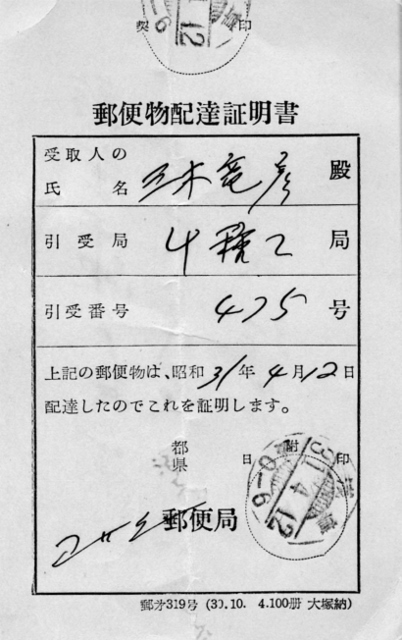 契 12 0-6 印
郵便物配達証明書
受取人の
氏名 三木竜彦 殿
引受局 局
引受番号 475 号
上記の郵便物は、昭和31年4月12日
配達したのでこれを証明します。
都
県
日附印
31 4 12 0-6
郵便局
郵才319号 (30.10. 4.100册 大塚納)